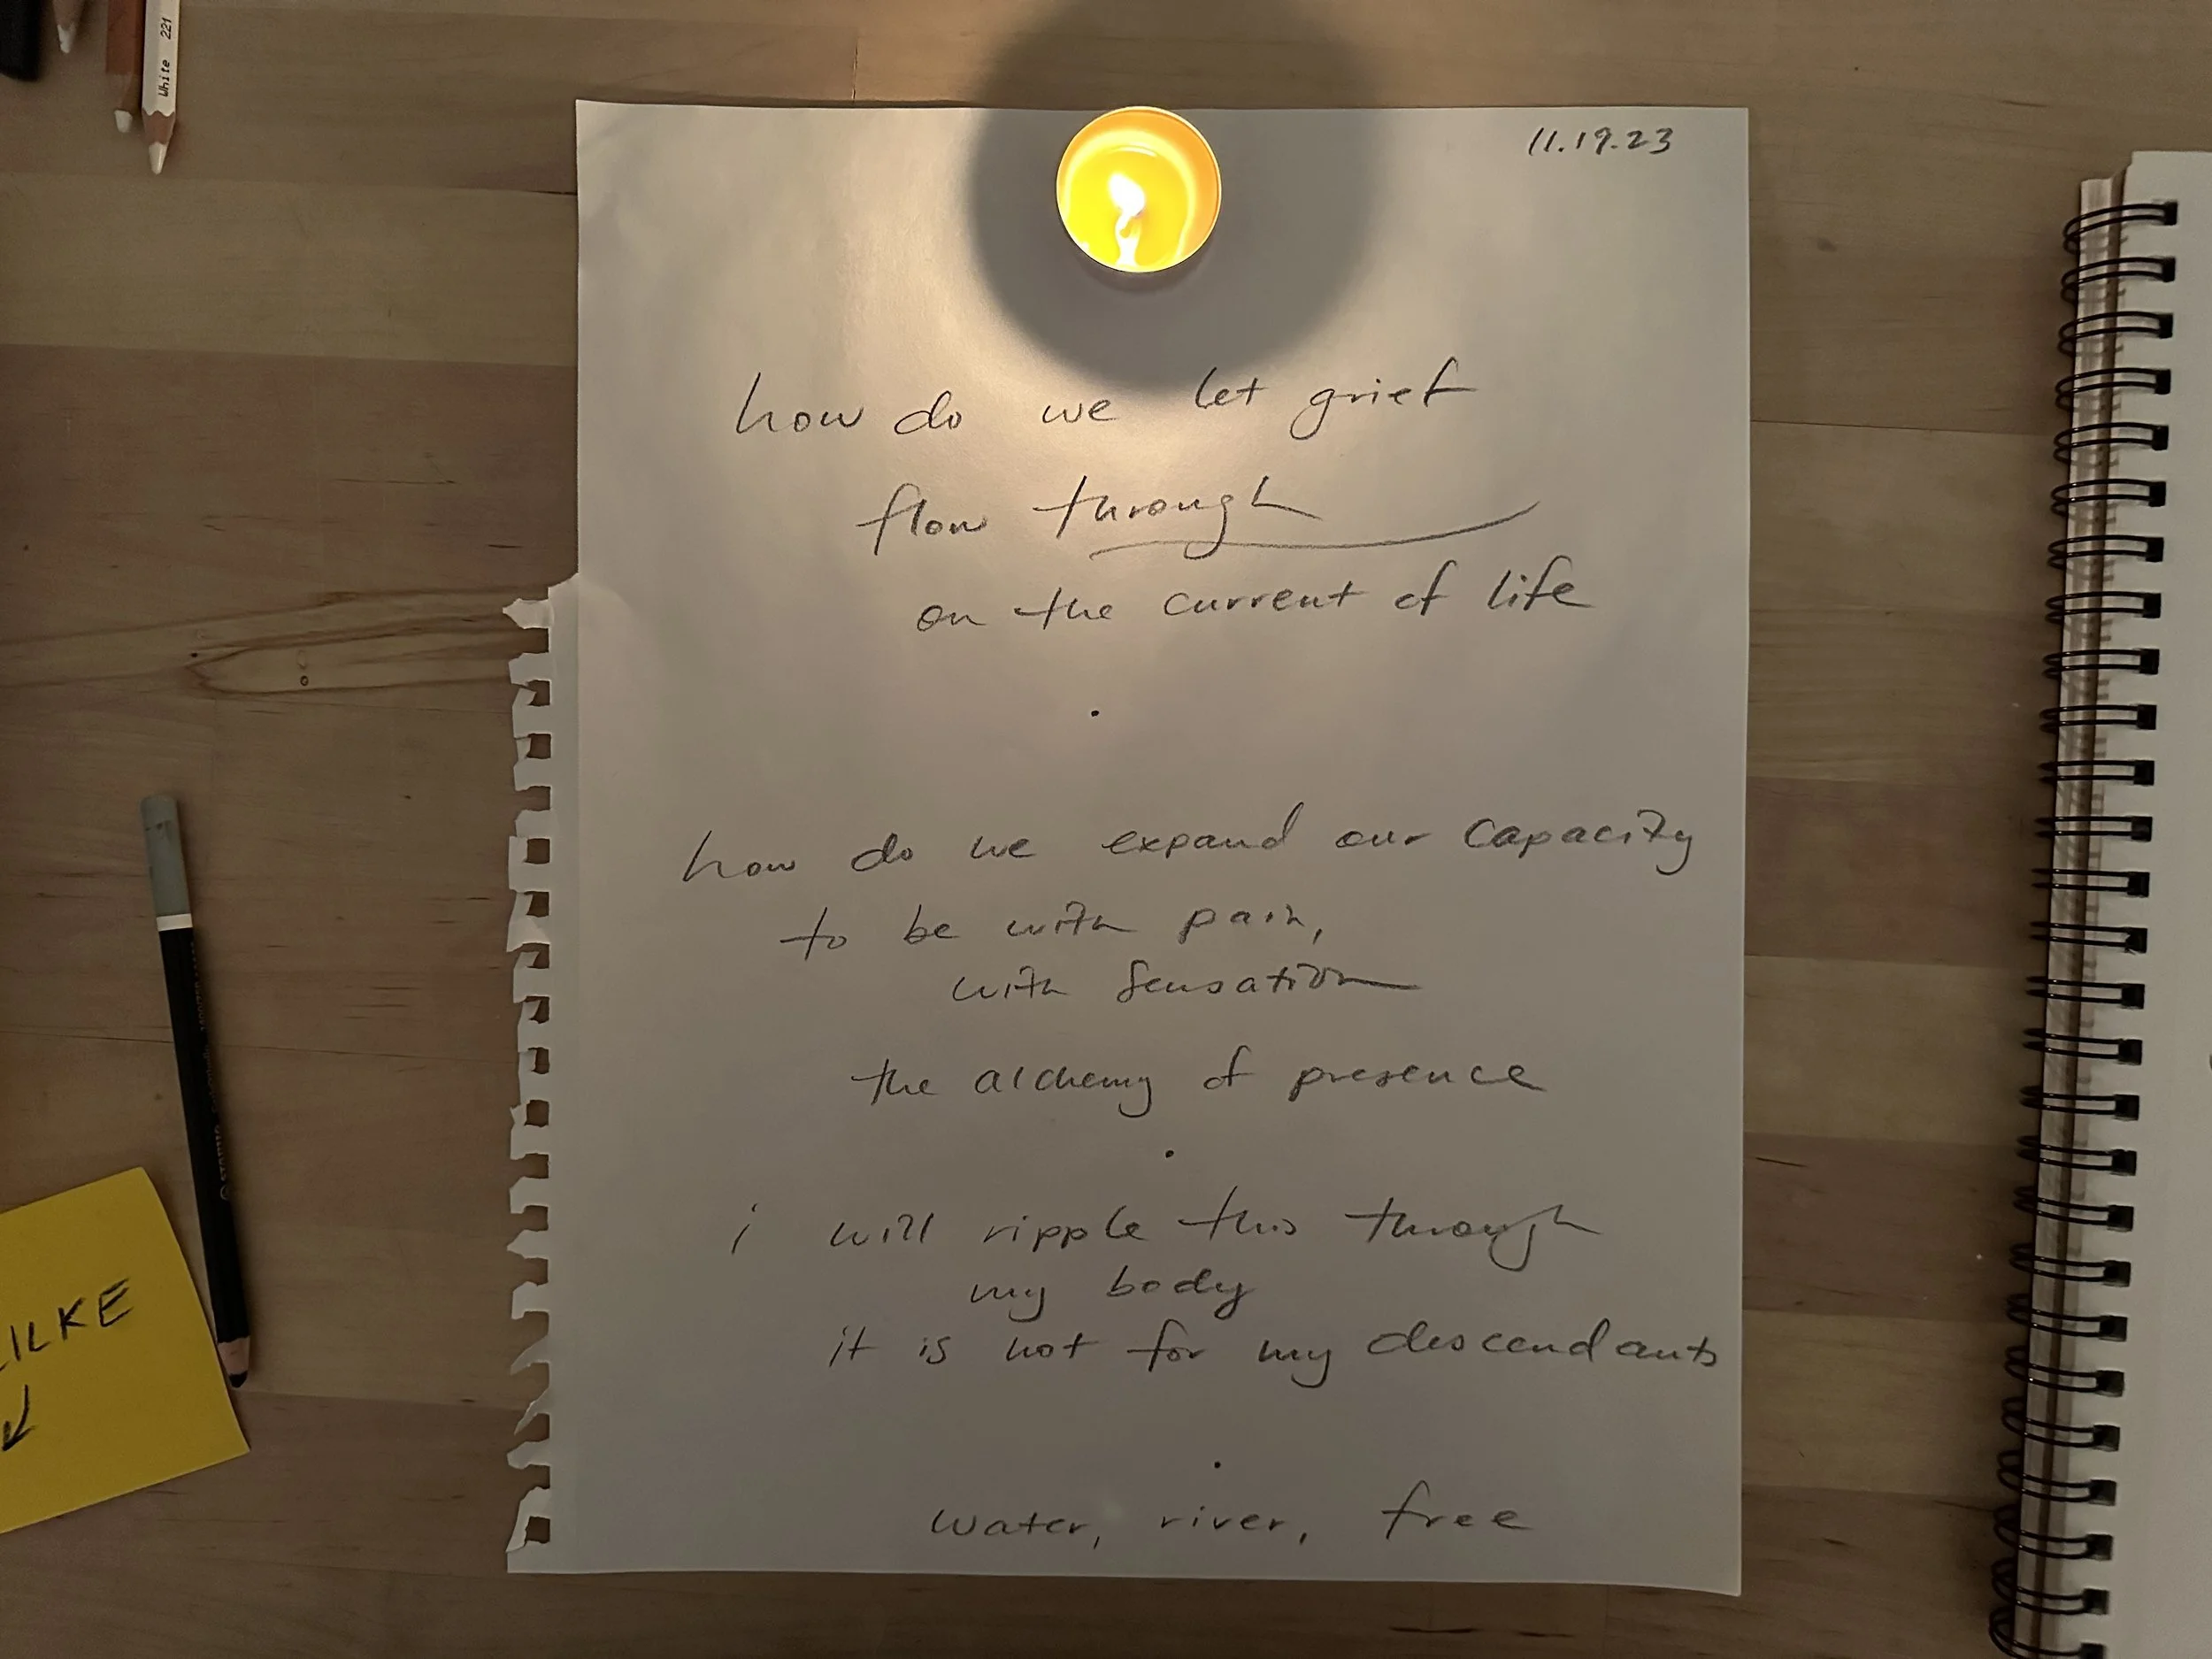 White 221
11.19.23
how do we let grief
flow through
on the current of life
.
how do we expand our capacity
to be with pain,
with sensation
the alchemy of presence
.
i will ripple this through
my body
it is not for my descendants
.
water, river, free
ILKE
STABILO